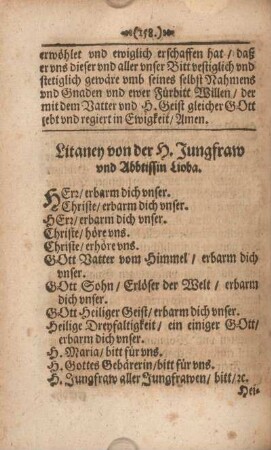 (158.)
erwöhlet vnd ewiglich erschaffen hat / daß
er vns dieser vnd aller vnser Bitt vestiglich vnd
stetiglich gewäre vmb seines selbst Nahmens
vnd Gnaden vnd ewer Fürbitt Willen / der
mit dem Vatter vnd H. Geist gleicher GOtt
lebt vnd regiert in Ewigkeit / Amen.
Litaney von der H. Jungfraw
vnd Abbtissin Lioba.
HErr / erbarm dich vnser.
Christe / erbarm dich vnser.
HErr / erbarm dich vnser.
Christe / höre vns.
Christe / erhöre vns.
GOtt Vatter vom Himmel / erbarm dich
vnser.
GOtt Sohn / Erlöser der Welt / erbarm
dich vnser.
GOtt Heiliger Geist / erbarm dich vnser.
Heilige Dreyfaltigkeit / ein einiger GOtt /
erbarm dich vnser.
H. Maria / bitt für vns.
H. Gottes Gebärerin / bitt für vns.
H. Jungfraw aller Jungfrawen / bitt / ꝛc.
Hei-